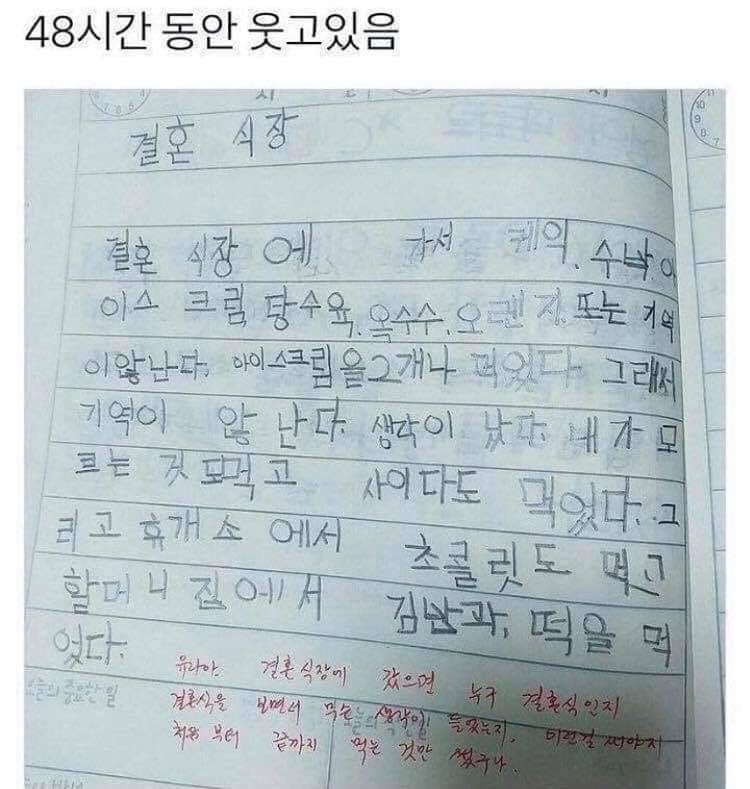 48시간 동안 웃고있음
결혼 식장
결혼 식장에 가서 케익, 수박, 아
이스 크림, 탕수육, 옥수수, 오렌지, 또는 기역
이않난다. 아이스크림을2개나 먹었다. 그래서
기역이 않 난다. 생각이 났다. 내가 모
르는 것 도먹고 사이다도 먹었다. 그
리고 휴개소에서 초클릿도 먹고
할머니 집에서 김밥과, 떡을 먹
었다.
유라야. 결혼식장에 갔으면 누구 결혼식인지
결혼식을 보면서 무슨 생각이 들었는지, 이런걸 써야지
처음부터 끝까지 먹는 것만 썼구나.
오늘의 중요한 일